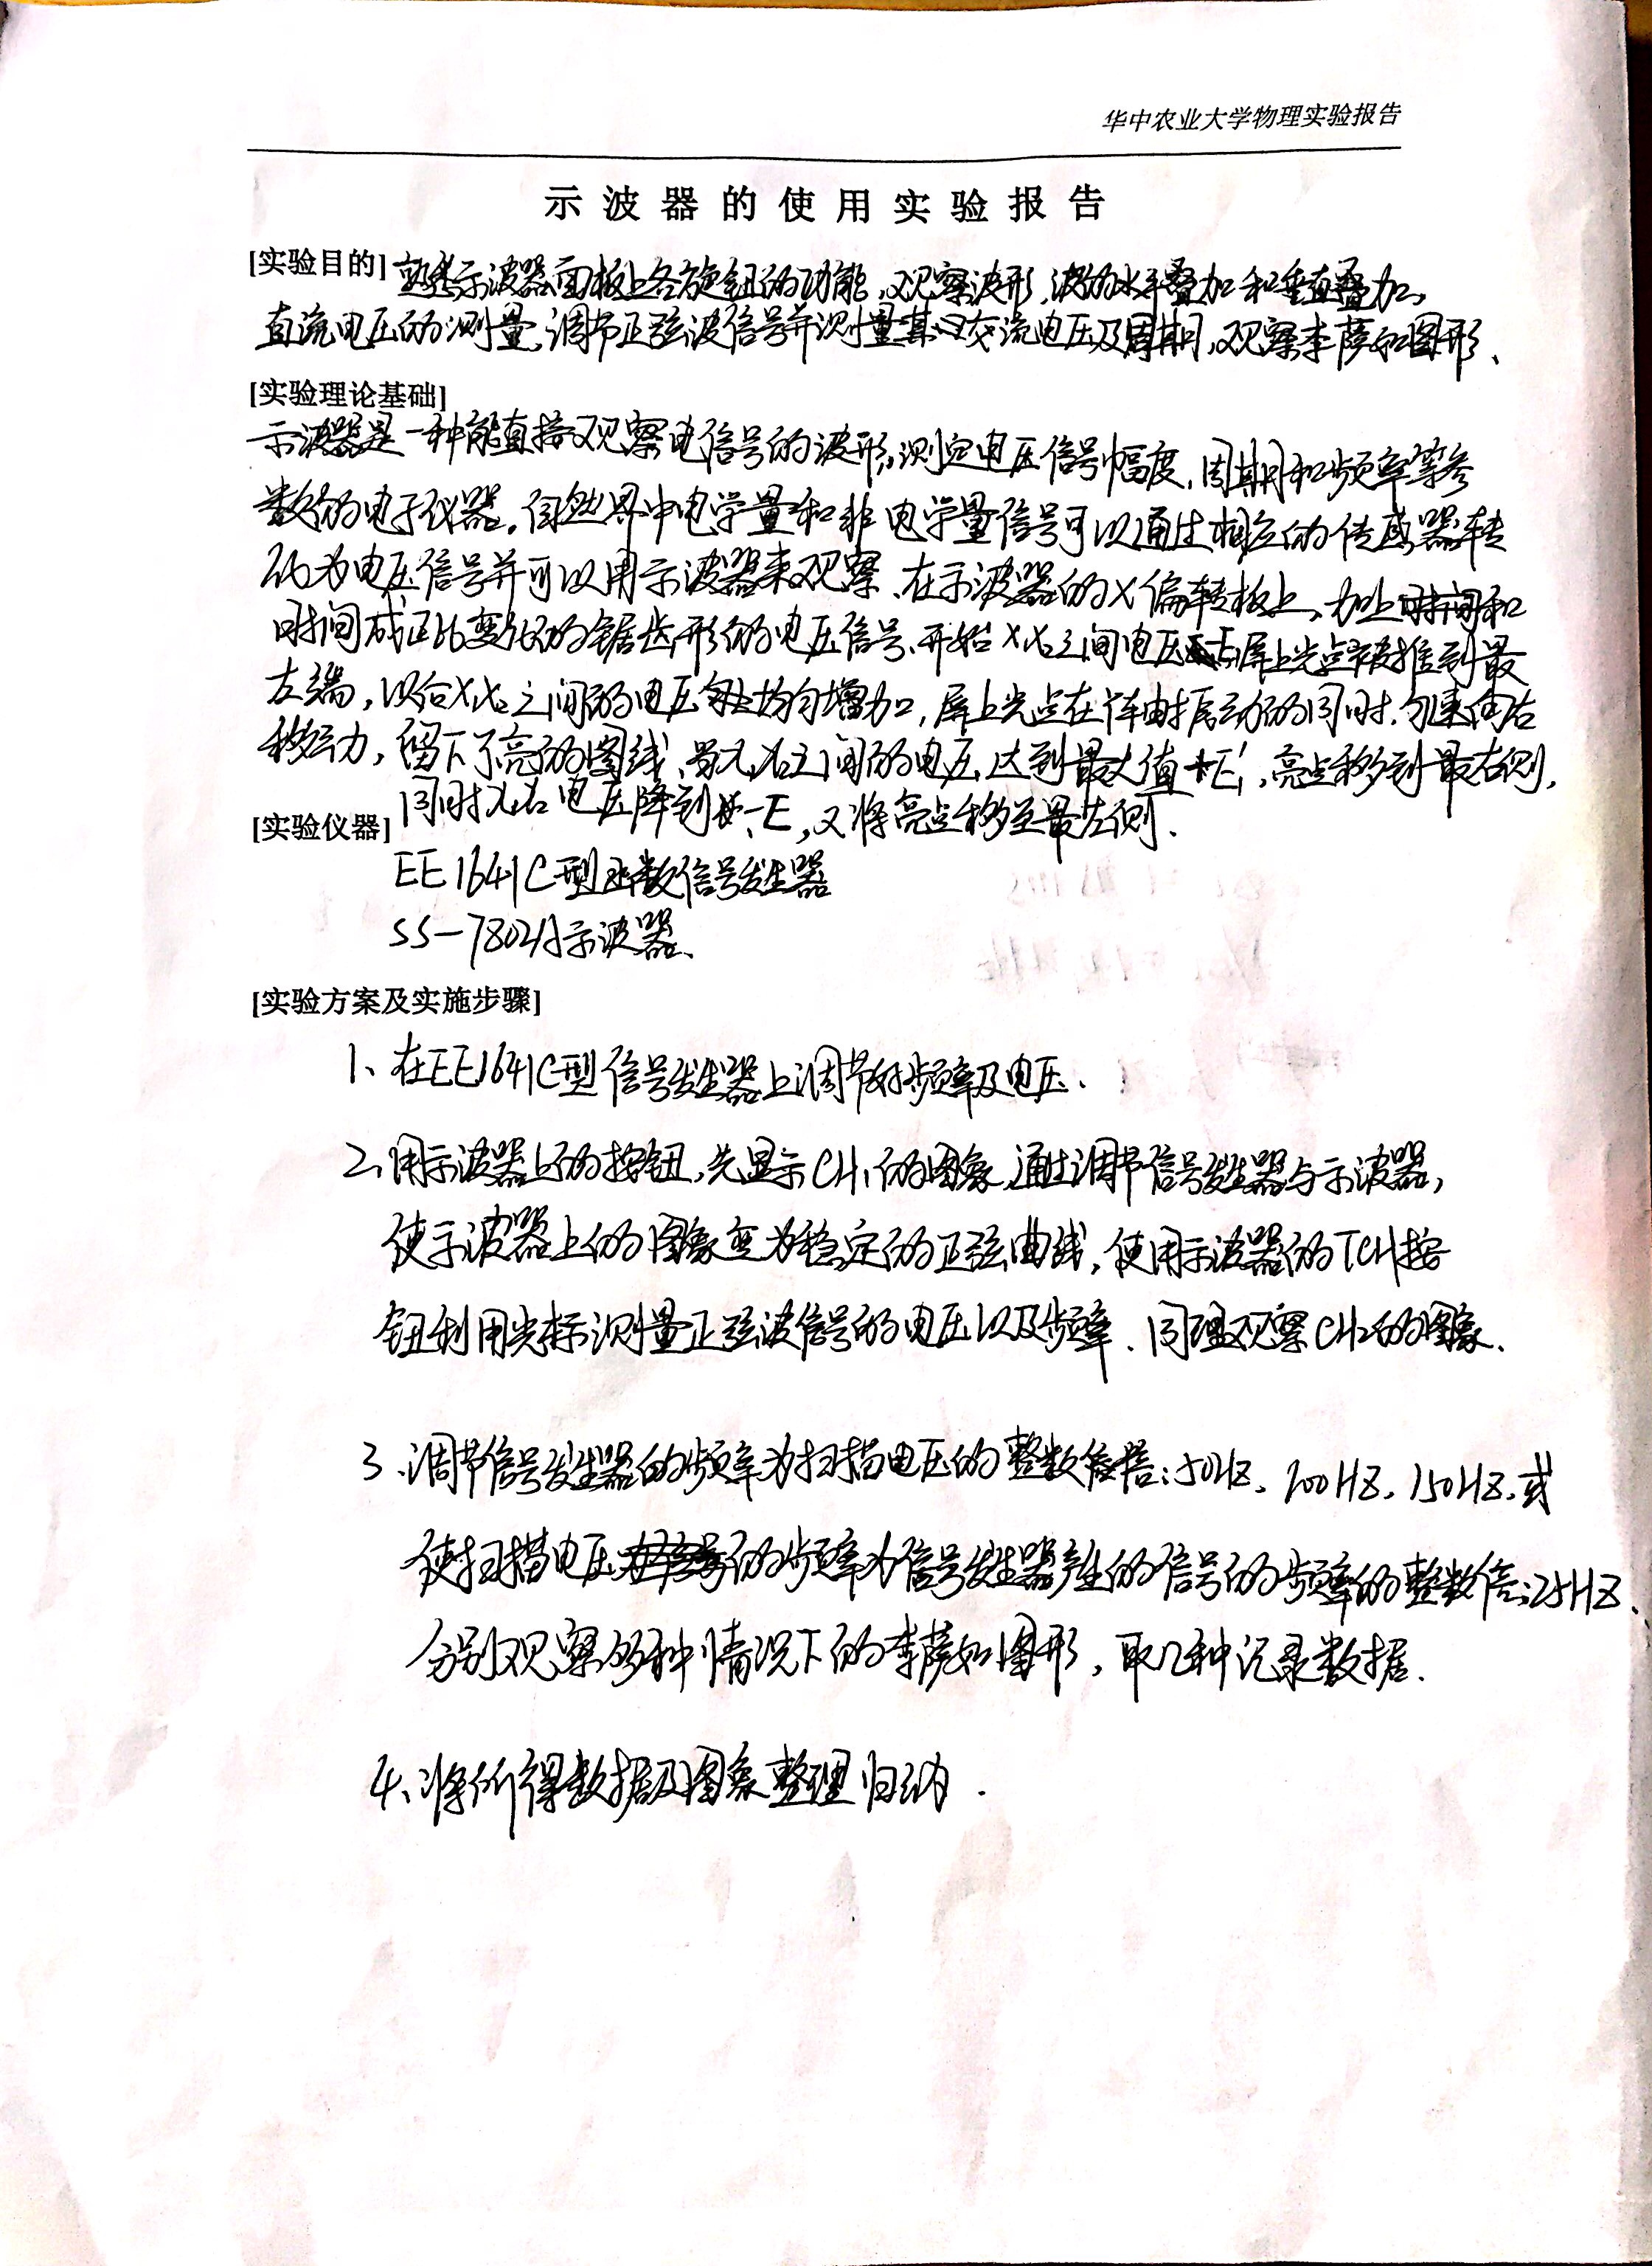 华中农业大学物理实验报告
示波器的使用实验报告
[实验目的] 熟悉示波器面板上各旋钮的功能,观察波形,波的水平叠加和垂直叠加,
直流电压的测量,调节正弦波信号并测量其交流电压及周期,观察李萨如图形、
[实验理论基础]
示波器是一种能直接观察电信号的波形,测定电压信号幅度,周期和频率等参
数的电子仪器,自然界中电学量和非电学量信号可以通过相应的传感器转
化为电压信号并可以用示波器来观察.在示波器的X偏转板上,加上时间和
时间成正比变化的锯齿形的电压信号.开始X之间电压 屏上光点被推到最
左端,以后X之间的电压均匀增加,屏上光点在作振动的同时,匀速向右
移动,留下了亮的图线,当之间的电压达到最大值+E,亮点移到最右侧,
同时电压降到-E,又将亮点移至最左侧.
[实验仪器]
EE1641C型函数信号发生器
SS-7802A示波器.
[实验方案及实施步骤]
1、在EE1641C型信号发生器上调节好频率及电压.
2、用示波器上的按钮,先显示CH1的图象,通过调节信号发生器与示波器,
使示波器上的图象变为稳定的正弦曲线,使用示波器的TCH按
钮利用光标测量正弦波信号的电压以及频率.同理观察CH2的图象.
3、调节信号发生器的频率为扫描电压的整数倍:50HZ,100HZ,150HZ,或
使扫描电压的频率为信号发生器产生的信号的频率的整数倍:25HZ.
分别观察多种情况下的李萨如图形,取几种记录数据.
4、将所得数据及图象整理归纳.